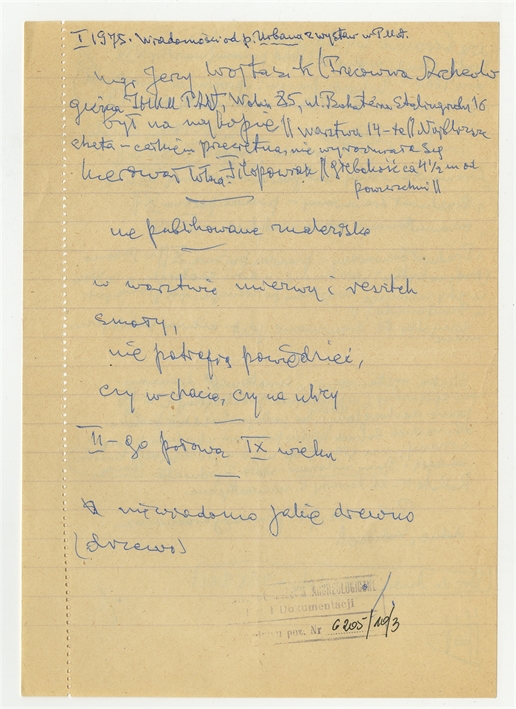 I 1975. Wiadomości od p. Urbana z wystaw w P.M.A.
mgr Jerzy Wojtasik (Pracownia Archeolo
giczna IHKM PAN, Wolin 85, ul. Bohaterów Stalingradu 16
był na wykopie || warstwa 14-te || Najbliższa
chata – całkiem przeciętna, nie wyróżniała się
kierował Wład. Filipowiak || głębokość ca 4 ½ m od
powierzchni ||
nie publikowane znalezisko
w warstwie mierzwy i resztek
smoły,
nie potrafią powiedzieć,
czy w chacie, czy na ulicy
II-ga połowa IX wieku
nie wiadomo jakie drewno
(drzewo)
ARCHEOLOGICZNE
Dokumentacji
poz. Nr 6205/10/3